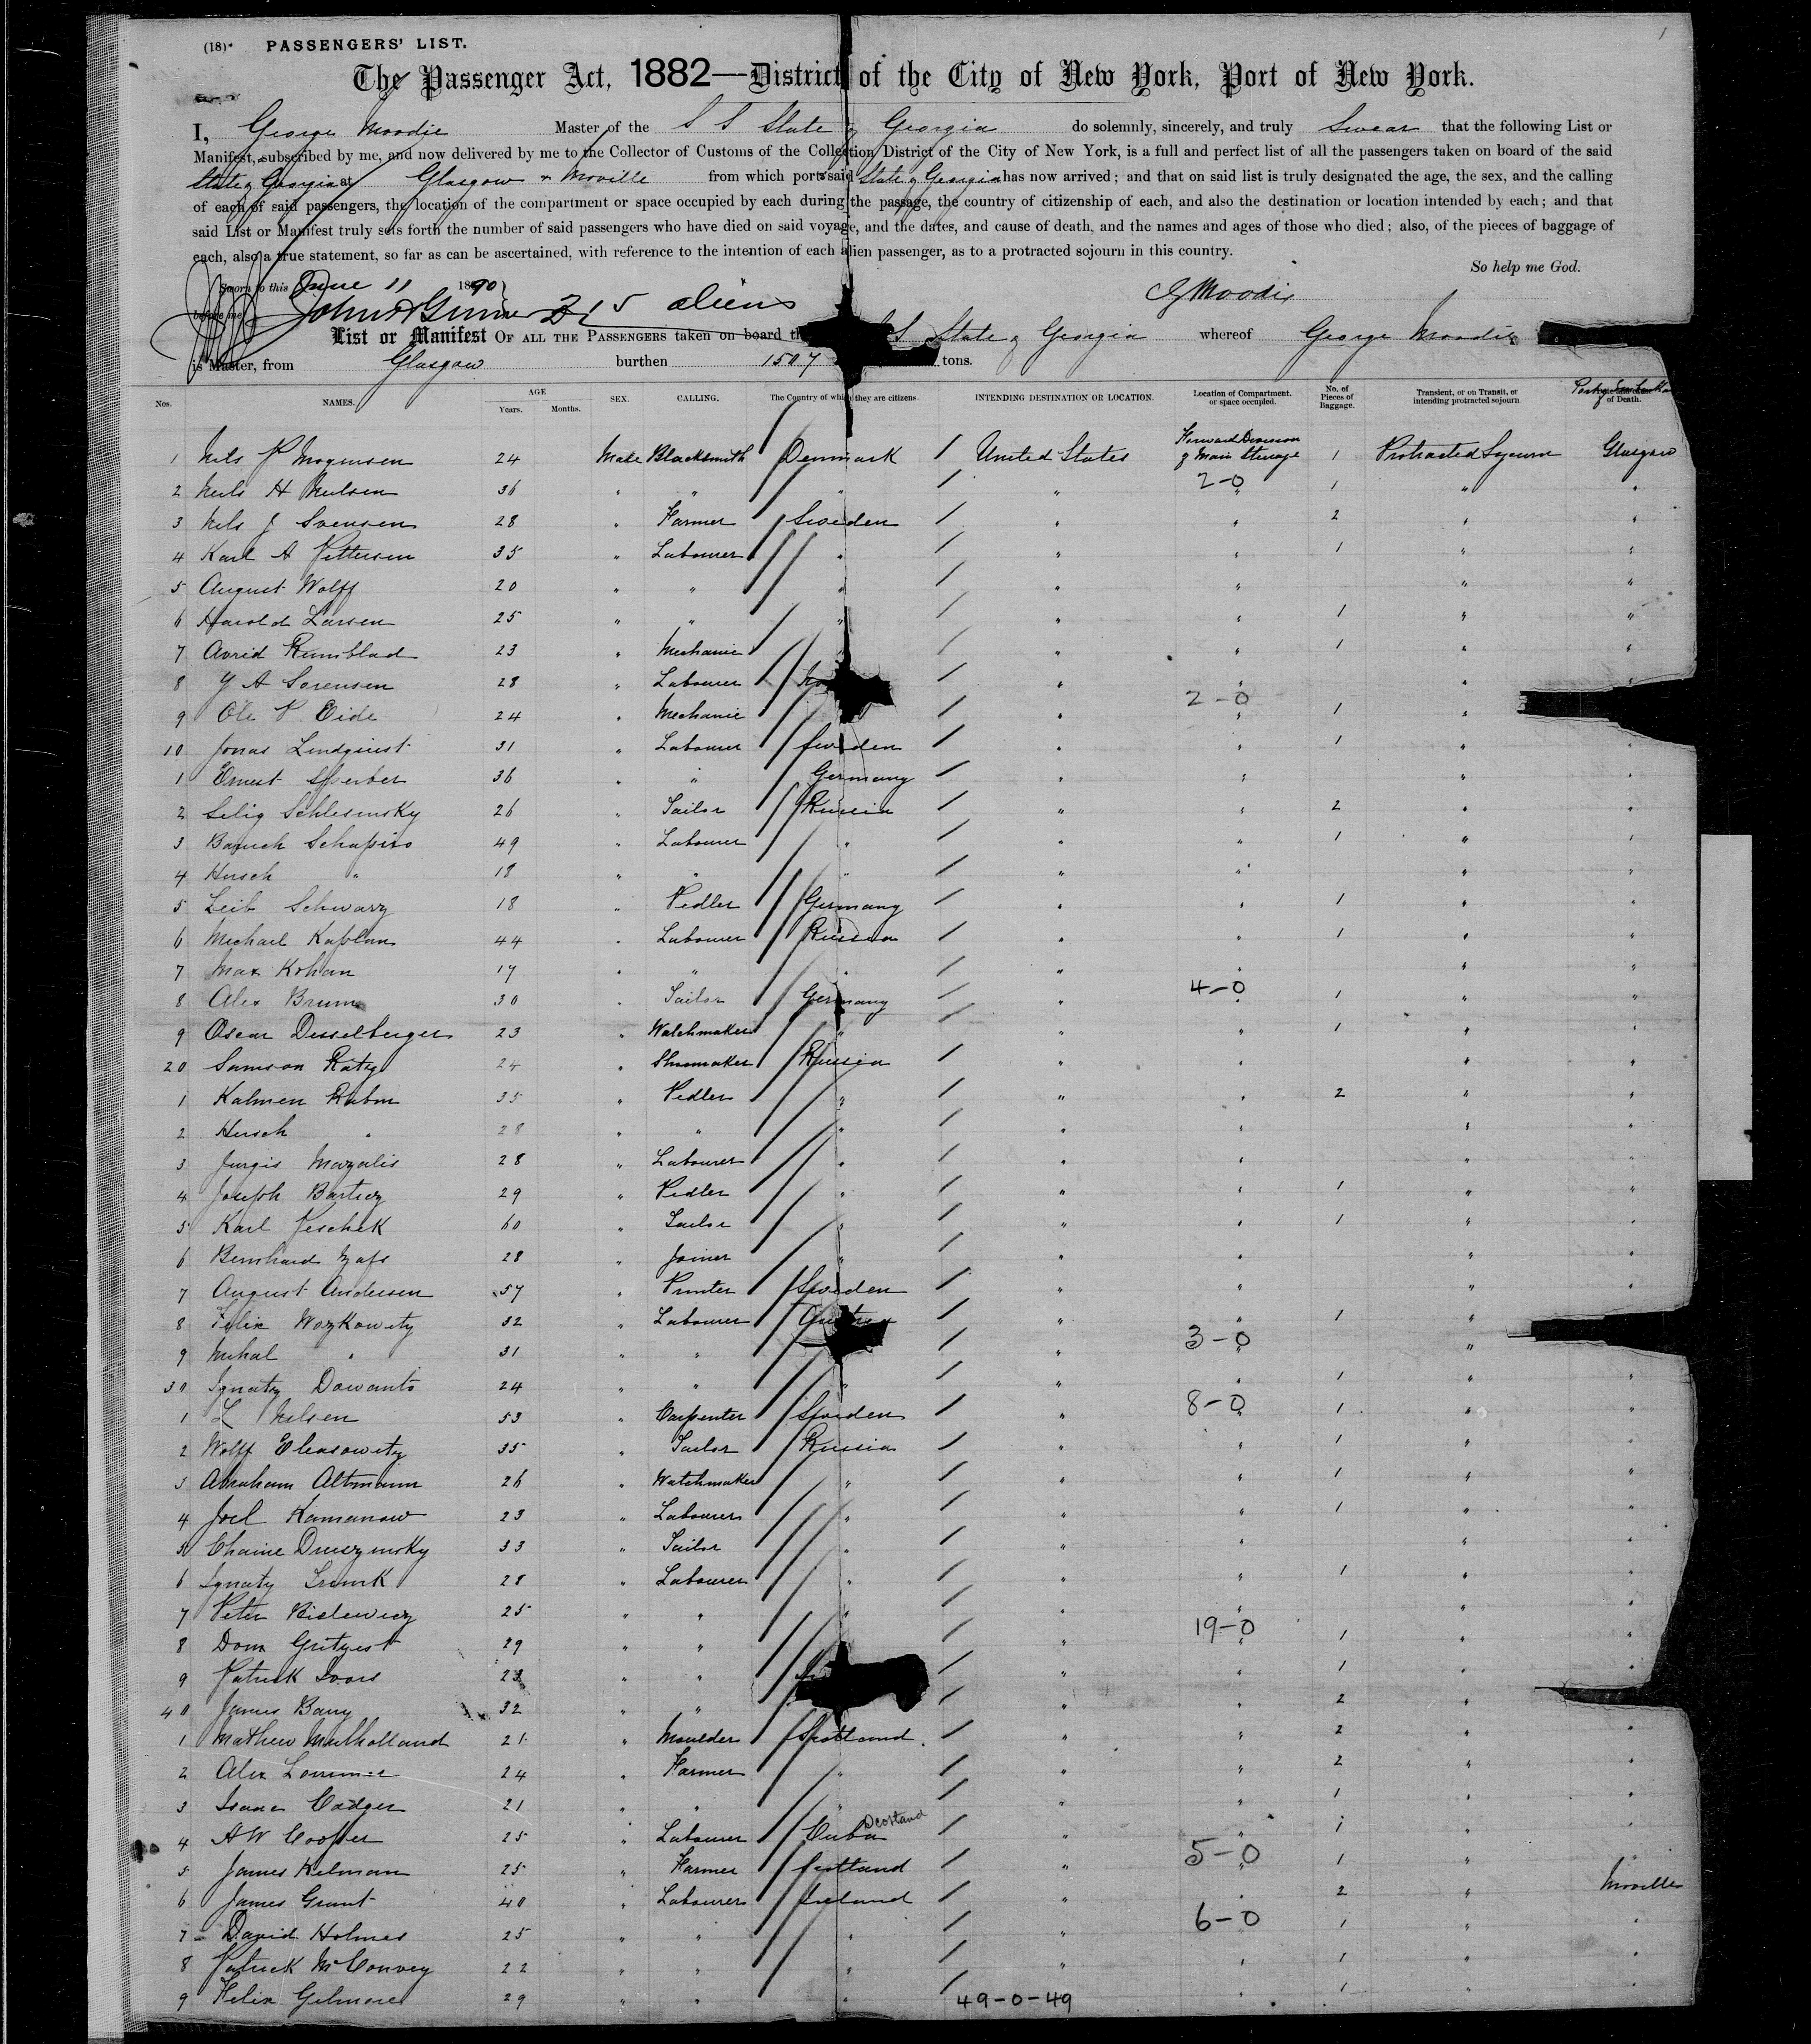 (18) PASSENGERS' LIST. 1
The Passenger Act, 1882—District of the City of New York, Port of New York.
I, George Moodie Master of the S S State of Georgia do solemnly, sincerely, and truly Swear that the following List or
Manifest, subscribed by me, and now delivered by me to the Collector of Customs of the Collection District of the City of New York, is a full and perfect list of all the passengers taken on board of the said
State of Georgia at Glasgow & Moville from which ports said State of Georgia has now arrived; and that on said list is truly designated the age, the sex, and the calling
of each of said passengers, the location of the compartment or space occupied by each during the passage, the country of citizenship of each, and also the destination or location intended by each; and that
said List or Manifest truly sets forth the number of said passengers who have died on said voyage, and the dates, and cause of death, and the names and ages of those who died; also, of the pieces of baggage of
each, also a true statement, so far as can be ascertained, with reference to the intention of each alien passenger, as to a protracted sojourn in this country.
So help me God.
Sworn to this June 11 1890
before me 215 aliens G Moodie
List or Manifest OF ALL THE PASSENGERS taken on board the S S State of Georgia whereof George Moodie
is Master, from Glasgow burthen 1507 tons.
Nos. NAMES. AGE Years. Months. SEX. CALLING. The Country of which they are citizens. INTENDING DESTINATION OR LOCATION. Location of Compartment. or space occupied. No. of Pieces of Baggage. Transient, or on Transit, or intending protracted sojourn. of Death.
1 Nils P Mogensen 24 Male Blacksmith Denmark United States Forward Division of Main Steerage 1 Protracted Sojourn Glasgow
2 Neils H Neilsen 36 " " " " 2-0 1 " "
3 Nils J Svensen 28 " Farmer Sweden " " 2 " "
4 Karl A Pettersen 35 " Labourer " " " 1 " "
5 August Wolff 20 " " " " " " "
6 Harold Larsen 25 " " " " " 1 " "
7 Avrid Rumblad 23 " Mechanic " " 1 " "
8 Y A Sorensen 28 " Labourer " " " "
9 Ole P Eide 24 " Mechanic " 2-0 1 "
10 Jonas Lindquist 31 " Labourer Sweden " " 1 " "
1 Ernest Sperber 36 " " Germany " " " "
2 Selig Schlesinsky 26 " Tailor Russia " " 2 " "
3 Baruch Schapiro 49 " Labourer " " " 1 " "
4 Hirsch " 18 " " " " " " "
5 Leib Schwarz 18 " Pedler Germany " " 1 " "
6 Michael Kaplan 44 " Labourer Russia " " 1 " "
7 Max Kohan 17 " " " " " " "
8 Alex Brum 30 " Tailor Germany " 4-0 1 " "
9 Oscar Desselberger 23 " Watchmaker " " " 1 " "
20 Samson Katz 24 " Shoemaker Russia " " " "
1 Kalmen Rubin 35 " Pedler " " " 2 " "
2 Hirsch " 28 " " " " " " "
3 Jurgis Mazalis 28 " Labourer " " " " "
4 Joseph Bartiez 29 " Pedler " " " 1 " "
5 Karl Peschek 60 " Tailor " " " 1 " "
6 Bernhard 28 " Joiner " " " " "
7 August Andersen 57 " Printer Sweden " " " "
8 Felix Wozkowitz 32 " Labourer Austria " " 1 "
9 Mihal " 31 " " " 3-0 "
30 Ignatz Dowanto 24 " " " " " 1 " "
1 L Nilsen 53 " Carpenter Sweden " 8-0 1 " "
2 Wolff Eleasowitz 35 " Tailor Russia " " 1 " "
3 Abraham Altmann 26 " Watchmaker " " " 1 " "
4 Joel Kamanow 23 " Labourer " " " 1 " "
5 Chaine 33 " Tailor " " " " "
6 Ignatz 28 " Labourer " " " 1 " "
7 Peter Bislewicz 25 " " " " " " "
8 Dom 29 " " " 19-0 1 " "
9 Patrick 23 " " " " 1 " "
40 James Barry 32 " " " " 2 "
1 Mathew Mulholland 21 " Moulder Scotland " " 2 " "
2 Alex Lorrimer 24 " Farmer " " " 2 " "
3 Isaac Cadger 21 " " " " " 1 " "
4 A W Cooper 25 " Labourer Cuba Scotland " " 1 " "
5 James Kelman 25 " Farmer Scotland " 5-0 1 " "
6 James Grant 40 " Labourer Ireland " " 2 " Moville
7 David Holmes 25 " " " " 6-0 1 " "
8 Patrick McConvey 22 " " " " " 1 " "
9 Felix Gilmore 29 " " " 49-0-49 " 1 " "